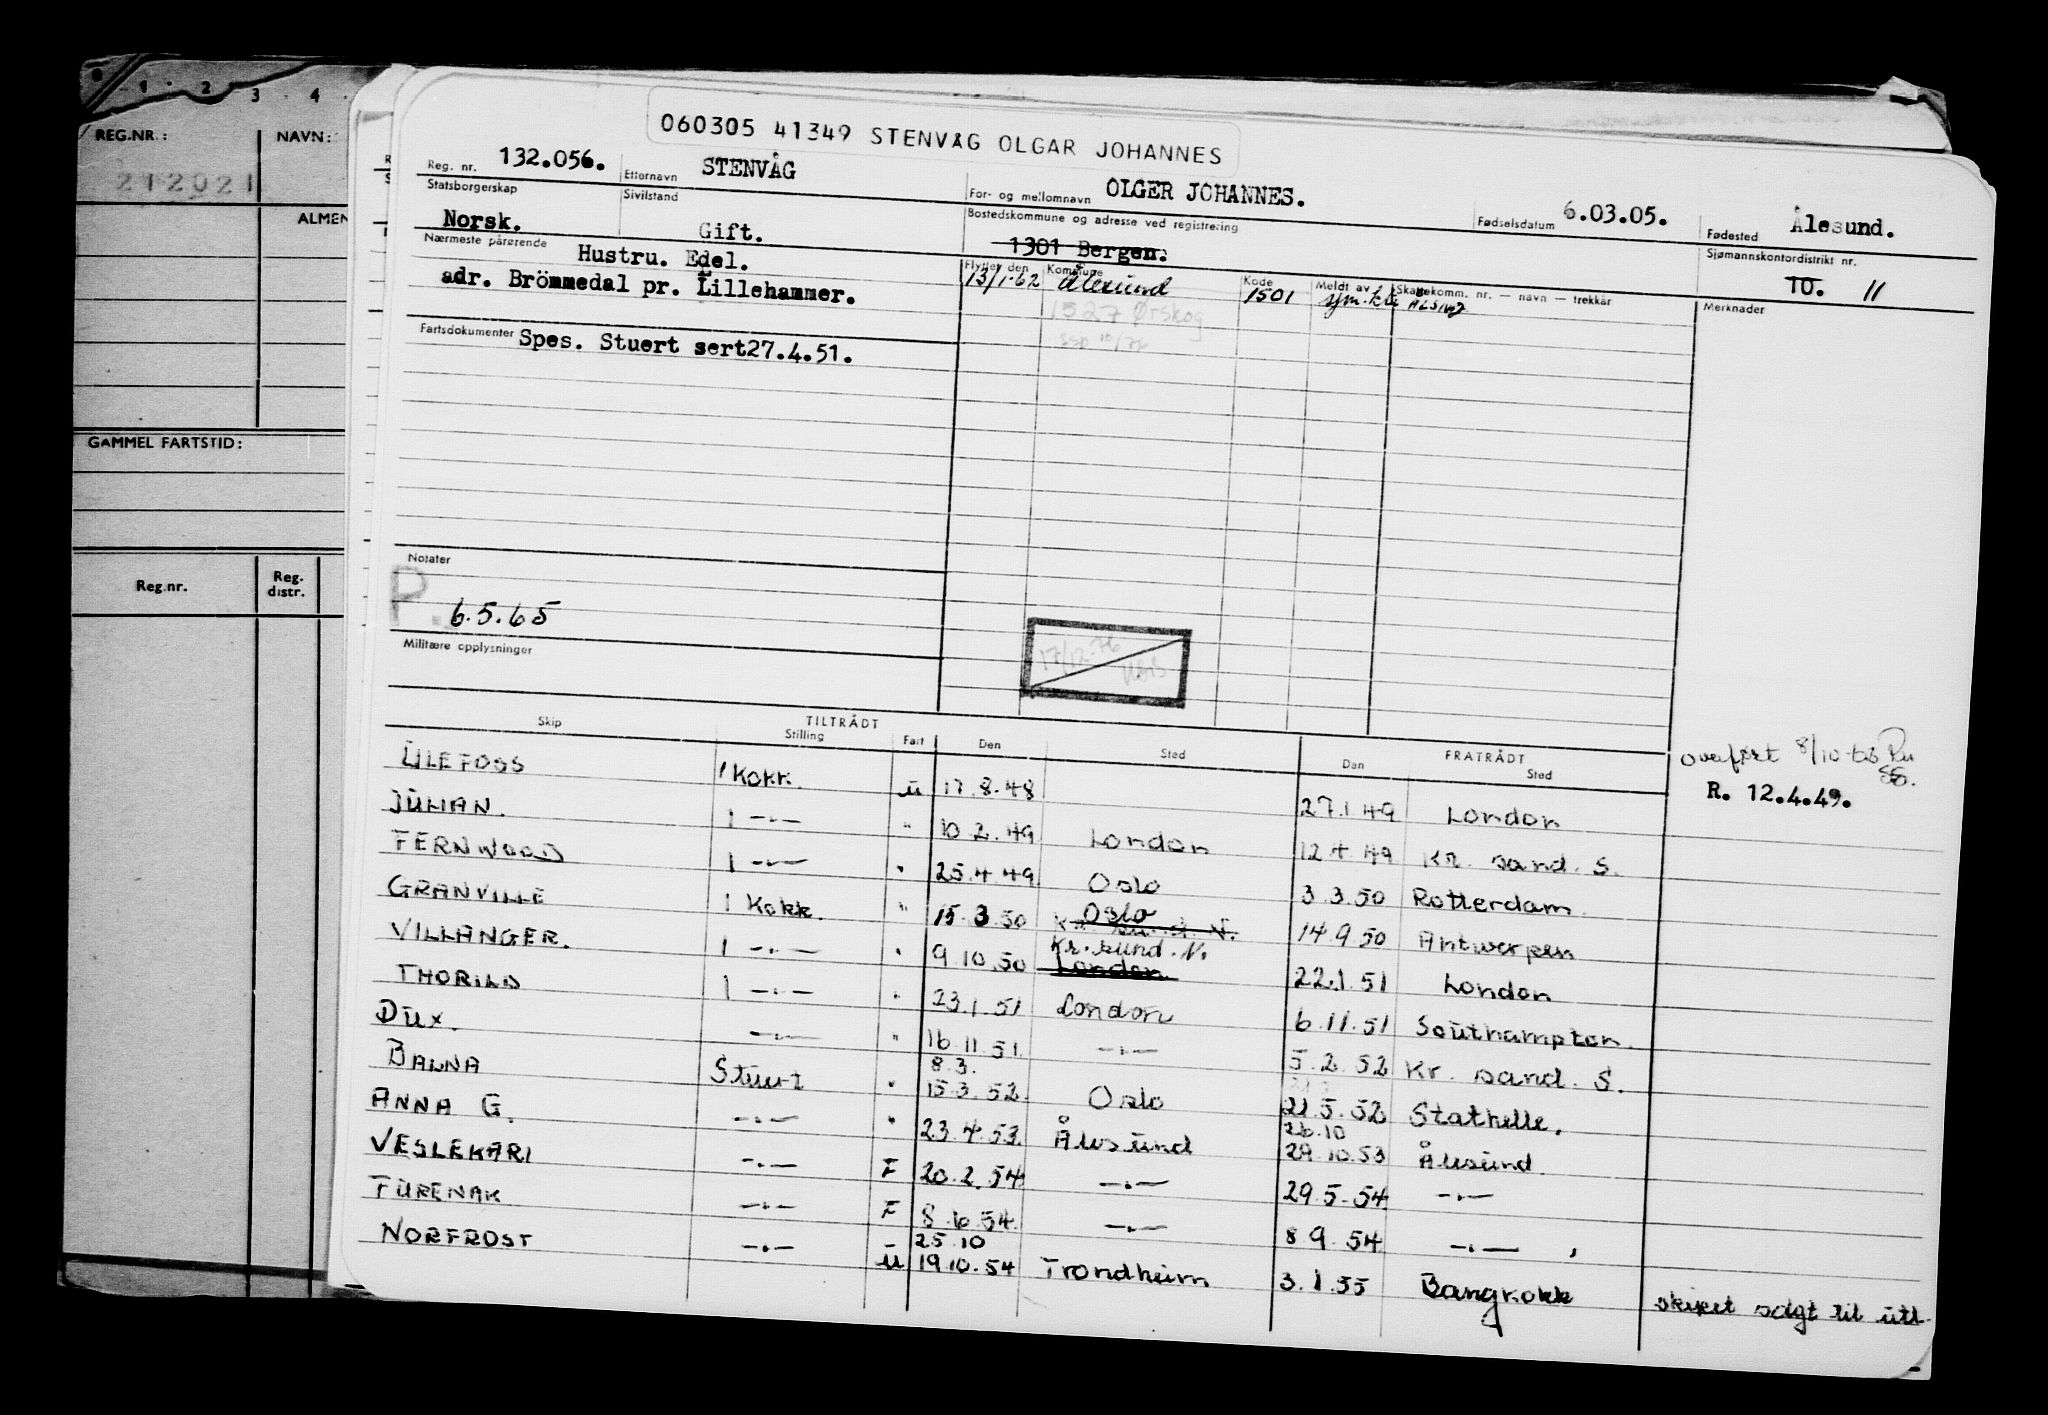 1 2 3 4
REG.NR.: NAVN:
212021
ALMEN
GAMMEL FARTSTID:
Reg.nr. Reg. distr.
060305 41349 STENVÅG OLGAR JOHANNES
Reg. nr. 132.056. Etternavn STENVÅG For- og mellomnavn OLGER JOHANNES. Fødselsdatum 6.03.05. Fødested Ålesund.
Statsborgerskap Norsk. Sivilstand Gift. Bostedskommune og adresse ved registrering 1301 Bergen. Sjømannskontordistrikt nr. 10. 11
Nærmeste pårørende Hustru. Edel.
adr. Brömmedal pr. Lillehammer.
Flyttet den Kommune Kode Meldt av Skattekomm. nr. — navn — trekkår Merknader
13/1-62 Ålesund 1501
1527 Ørskog
Fartsdokumenter Spes. Stuert sert27.4.51.
Notater
P. 6.5.65
17/12-76
Militære opplysninger
TILTRÅDT FRATRÅDT
Skip Stilling Fart Den Sted Den Sted
overført 8/10-63
R. 12.4.49.
LILEFOSS 1 Kokk. u 17.8.48 27.1.49 London
JULIAN. 1 -"- " 10.2.49 London 12.4.49 Kr. sand. S.
FERNWOOD 1 -"- " 25.4.49 Oslo 3.3.50 Rotterdam.
GRANVILLE 1 Kokk. " 15.3.50 Kr. sund. N. Oslo 14.9.50 Antwerpen
VILLANGER. 1 -"- " 9.10.50 London Kr. sund. N. 22.1.51 London
THORILD 1 -"- " 23.1.51 London 6.11.51 Southampton.
DUX. -"- " 16.11.51 -"- 5.2.52 Kr. sand. S.
8.3.
BALNA Stuert " 15.3.52 Oslo 21.5.52 Stathelle.
26.10
ANNA G. -"- " 23.4.53 Ålesund 29.10.53 Ålesund.
VESLEKARI -"- F 20.2.54 -"- 29.5.54 -"-
FURENAK -"- F 8.6.54 -"- 8.9.54 -"-
25.10
NORFROST -"- u 19.10.54 Trondheim 3.1.55 Bangkokk skipet solgt til utl.